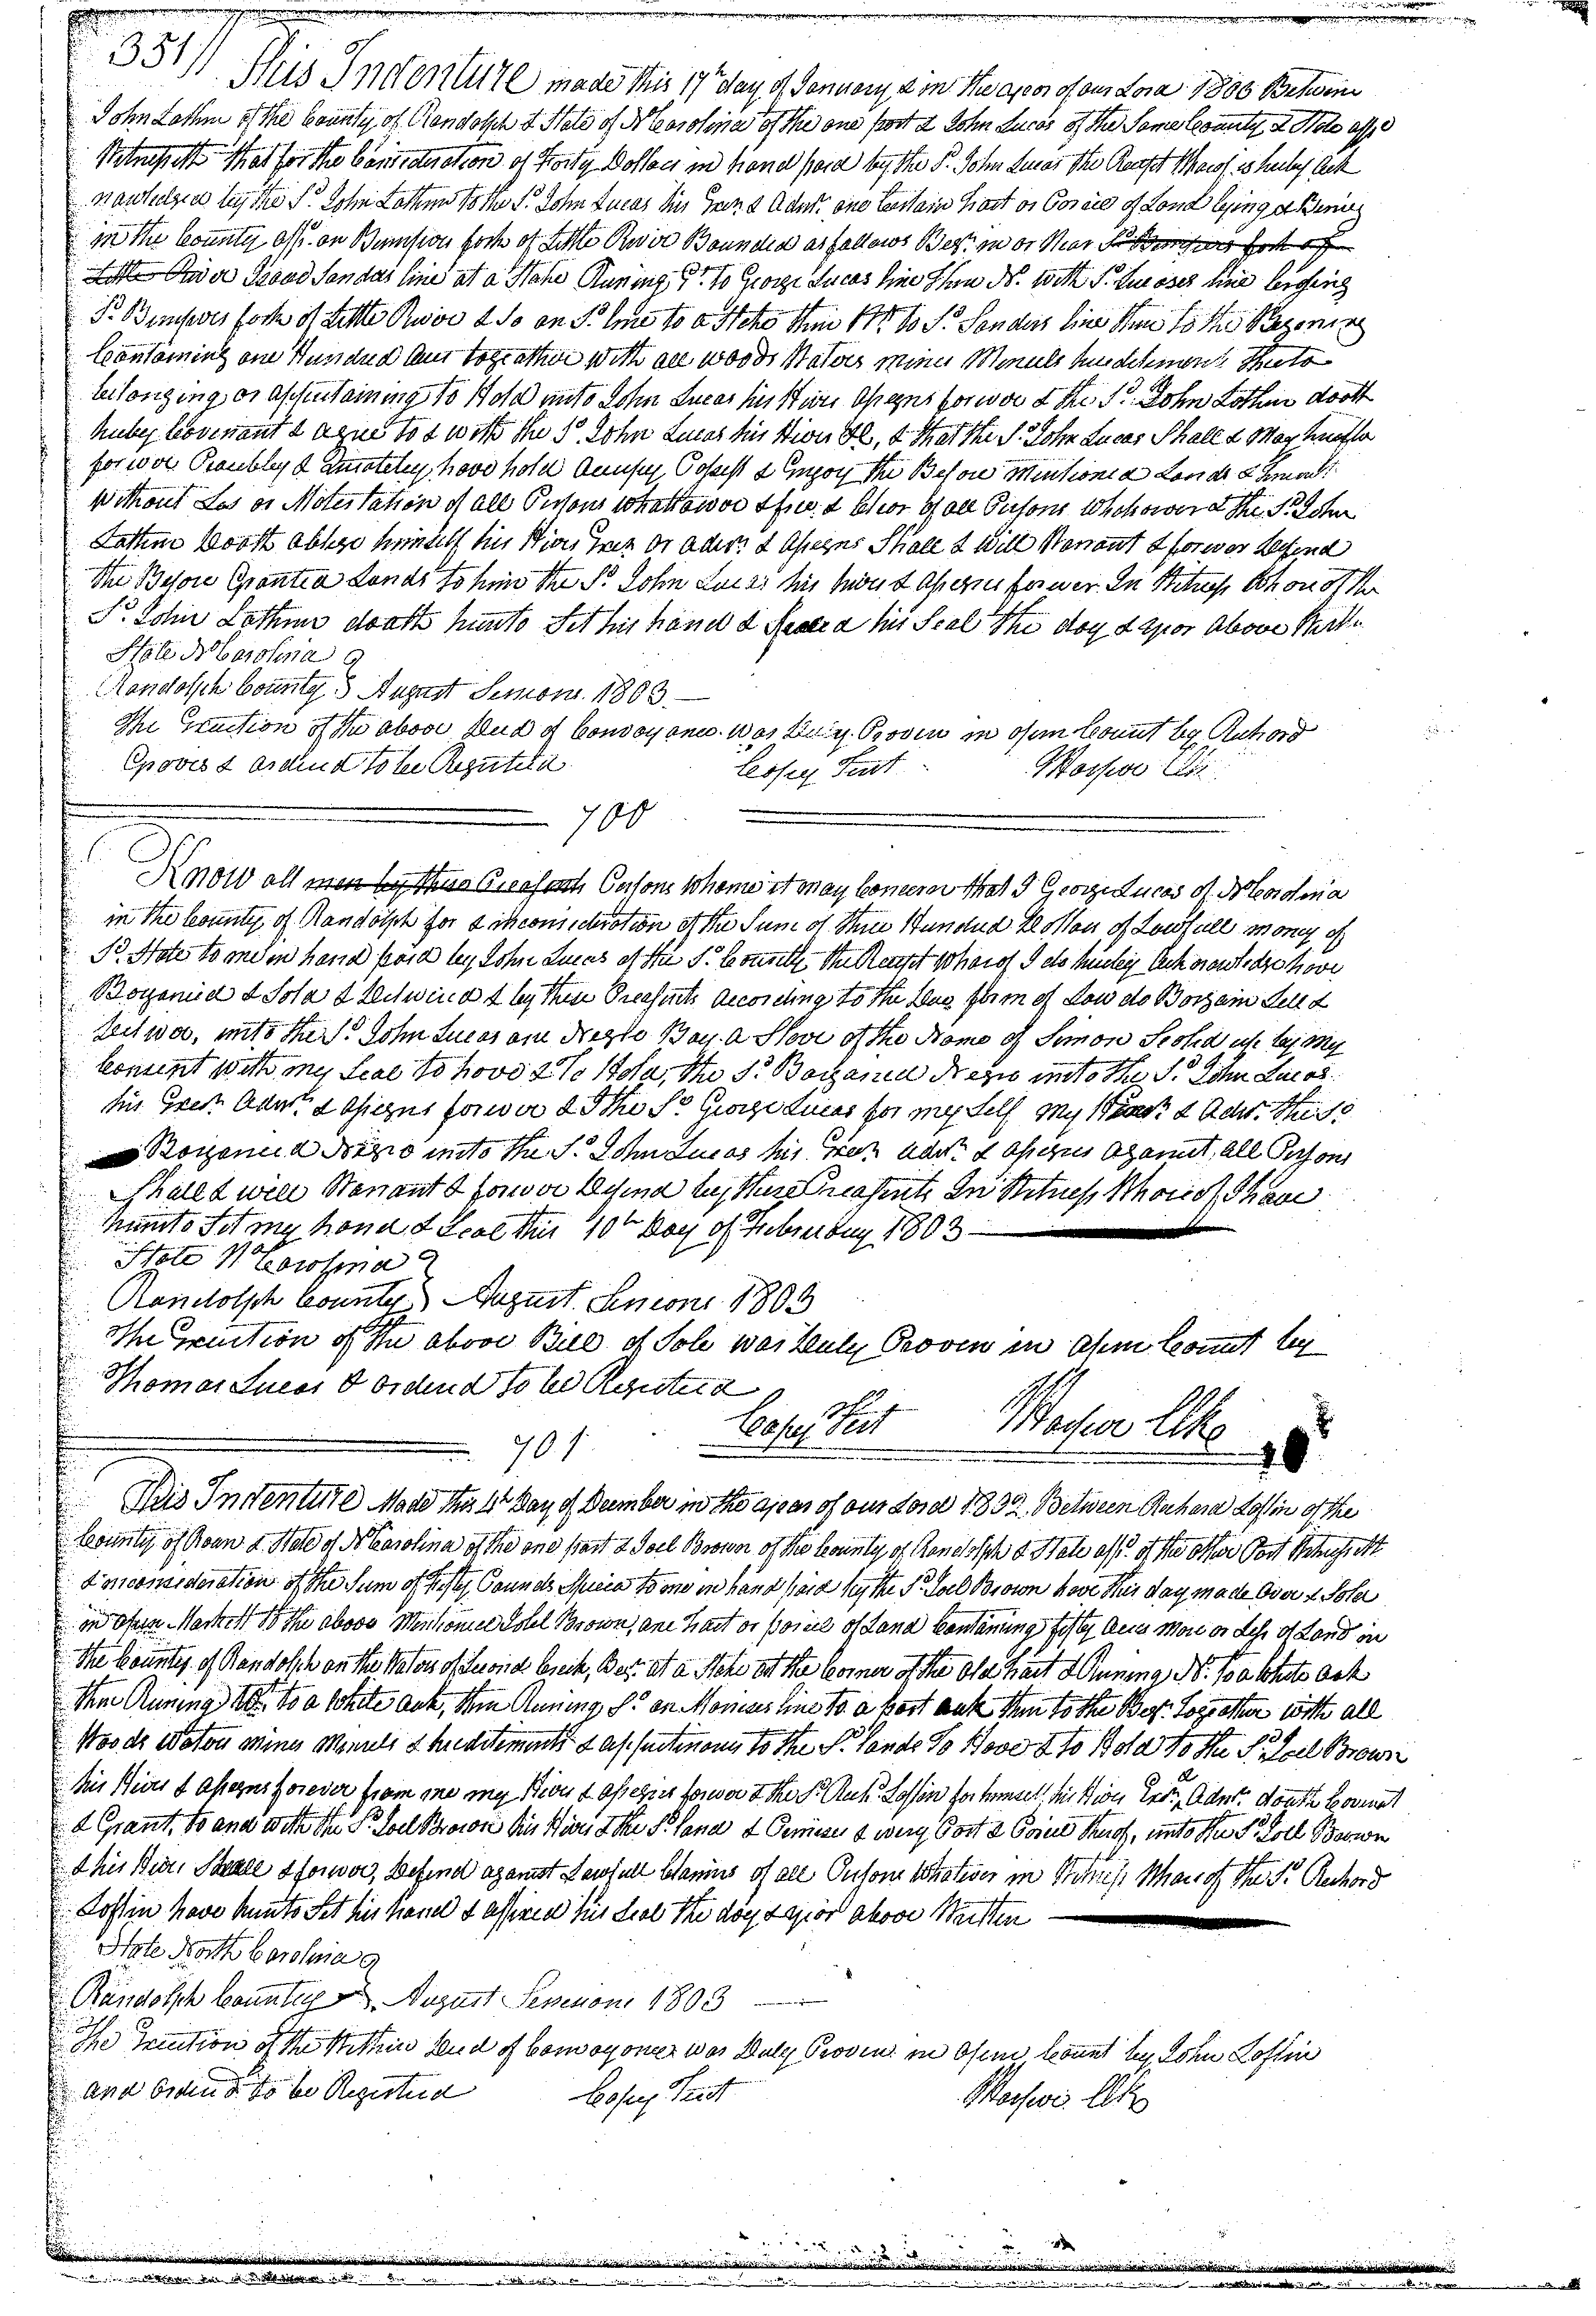 351// This Indenture made this 17th day of January & in the year of our Lord 1800 Betwine
John Lathm of the County of Randolph & State of N Carolina of the one part & John Lucas of the Same County & State affsd
Witnesseth that for the Consideration of Forty Dollars in hand paid by the Sd. John Lucas the Receipt Wharof is hereby Ack
nowledged by the Sd. John Lathm to the Sd. John Lucas his Exrs & Admr. one Certain tract or Parcel of Land lying & Being
in the County affs. on Bumpses fork of Little River Bounded as fallows Beg. in or Near Sd Bumpses fork of
Little River Isaac Sandas line at a Stake Runing to George Lucas line then N. with Sd. Lucases line crossing
Sd. Bumpses fork of Little River & So on Sd. line to a Stake then to Sd. Sanders line then to the Begening
Containing one Hundred Acrs togeather with all woods Waters mines Minerals heredetements thereto
belonging or appertaining to Hold unto John Lucas his Hires Assegns forever & the Sd. John Lathm doath
hereby Covenant & agree to & with the Sd. John Lucas his Hires &c, & that the Sd. John Lucas Shall & May hereafter
forever Peacebley & Quiateley have hold Accupy Possess & Enjoy the Before Mentioned Lands &
without Les or Molestation of all Persons whatsoever & free & Clear of all Persons Whatsoever & the Sd. John
Lathm Doath oblege himself his Hires Exrs or admrs & Assegns Shall & Will Warrant & forever Defend
the Before Granted Lands to him the Sd. John Lucas his hires & Assegnes forever. In Witness Whareof the
Sd. John Lathm doath hereunto Set his hand & Sealed his Seal the day & year above Writtn
State N Carolina
Randolph County August Sessions 1803 —
The Execution of the above Deed of Convayance was Duly Proven in open Court by Richard
Graves & ordered to be Registerd Copey Test Harper Clk
700
Know all men by these Preasents Persons Whome it may Concern that I George Lucas of N Carolina
in the County of Randolph for & inconsideration of the Sum of three Hundred Dollars of Lawfull money of
Sd. State to me in hand paid by John Lucas of the Sd. County the Receipt Wharof I do hereby Acknowledge have
Bargained & Sold & Delivered & by these Preasents According to the Due form of Law do Bargain Sell &
Deliver, unto the Sd. John Lucas one Negro Boy. a Slave of the Name of Simon Sealed up by My
Consent with my Seal to have & To Hold, the Sd. Bargained Negro unto the Sd. John Lucas
his Exers Admrs & Assegns forever & I the Sd George Lucas for my Self My & Admr. the Sd
Bargened Negro unto the Sd. John Lucas his Exers admrs & assegnes against all Persons
Shall & will Warrant & forever Defend by these Preasents In Witness Whareof I have
hereunto Set my hand & Seal this 10th Day of Febreuary 1803
State N Carolina
Randolph County August Sessions 1803
The Execution of the above Bill of Sale was Duly Proven in open Court by
Thomas Lucas & orderd to be Registerd
Copey Test Harper Clk
701
This Indenture Made this 4th Day of Decmber in the year of our Lord 1802 Between Richard Loflin of the
County of Roan & State of N Carolina of the one part & Joel Brown of the County of Randolph & State affsd. of the other Part Witnesseth
& inconsideration of the Sum of Fifty Pounds Specia to me in hand paid by the Sd. Joel Brown have this day made Over & Sold
in open Markett to the above Mentioned Joel Brown, one tract or parcel of Land Containing fifty Acres More or Less of Land in
the County of Randolph on the Waters of Second Creek, Beg. at a Stake at the Corner of the old tract & Runing N. to a White oak
then Runing to a White oak, then Runing S. on line to a post oak then to the Beg. Togeather with all
Woods Waters mines Minerals & hereditiments & appurtinances to the Sd. Lands To Have & to Hold to the Sd. Joel Brown
his Hires & assegns forever from me my Hires & assegns forever & the Sd. Rich. Loflin for himself, his Hires Exrs, Admr. doath Covenat
& Grant, to and with the Sd. Joel Brown his Hires & the Sd. land & Premises & every Part & Parcel thereof, unto the Sd. Joel Brown
& his Hires Shall & forever, Defend against Lawfull Claims of all Persons Whatever in Witness Whareof the Sd Richard
Loflin have hereunto Set his hand & affixed his Seal the day & year above Written
State North Carolina
Randolph County August Sessions 1803
The Execution of the Within Deed of Convayance was Duly Proven in Open Court by John Loflin
and Orderd to be Registerd Copey Test Harper Clk